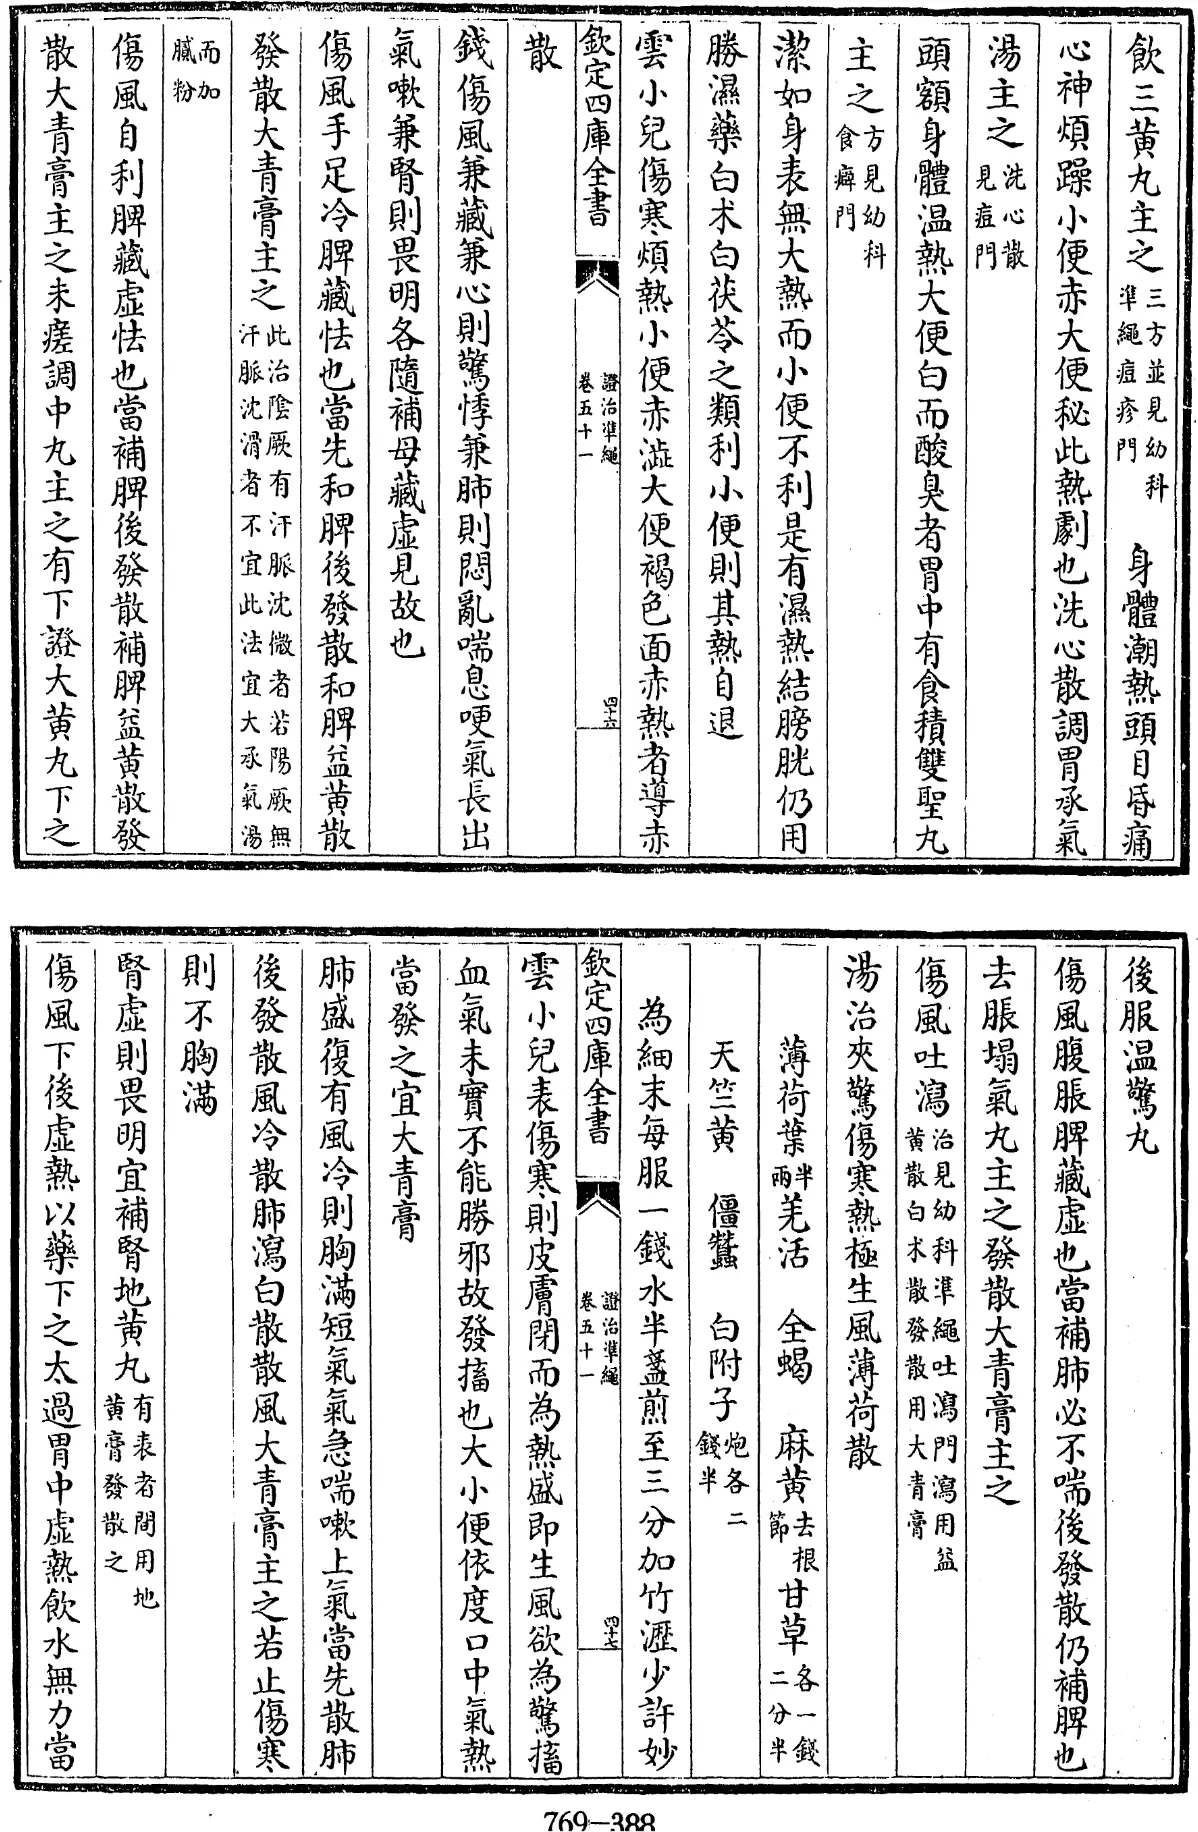 飲三黄丸主之三方並見幼科準繩痘疹門 身體潮熱頭目昏痛
心神煩躁小便赤大便秘此熱劇也洗心散調胃承氣
湯主之洗心散見痘門
頭額身體温熱大便白而酸臭者胃中有食積雙聖丸
主之方見幼科食癖門
潔如身表無大熱而小便不利是有濕熱結膀胱仍用
勝濕藥白术白茯苓之類利小便則其熱自退
雲小兒傷寒煩熱小便赤澁大便褐色面赤熱者導赤
欽定四庫全書 證治準繩 卷五十一 四十六
散
錢傷風兼藏兼心則驚悸兼肺則悶亂喘息哽氣長出
氣嗽兼腎則畏明各隨補母藏虛見故也
傷風手足冷脾藏怯也當先和脾後發散和脾益黄散
發散大青膏主之此治陰厥有汗脈沈微者若陽厥無汗脈沈滑者不宜此法宜大承氣湯
而加膩粉
傷風自利脾藏虛怯也當補脾後發散補脾益黄散發
散大青膏主之未瘥調中丸主之有下證大黄丸下之
後服温驚丸
傷風腹脹脾藏虛也當補肺必不喘後發散仍補脾也
去脹塌氣丸主之發散大青膏主之
傷風吐瀉治見幼科準繩吐瀉門瀉用益黄散白术散發散用大青膏
湯治夾驚傷寒熱極生風薄荷散
薄荷葉半兩 羌活 全蝎 麻黄去根節 甘草各一錢二分半
天竺黄 僵蠶 白附子炮各二錢半
為細末每服一錢水半盞煎至三分加竹瀝少許妙
欽定四庫全書 證治準繩 卷五十一 四十七
雲小兒表傷寒則皮膚閉而為熱盛即生風欲為驚搐
血氣未實不能勝邪故發搐也大小便依度口中氣熱
當發之宜大青膏
肺盛復有風冷則胸滿短氣氣急喘嗽上氣當先散肺
後發散風冷散肺瀉白散散風大青膏主之若止傷寒
則不胸滿
腎虛則畏明宜補腎地黄丸有表者間用地黄膏發散之
傷風下後虛熱以藥下之太過胃中虛熱飲水無力當
769-388